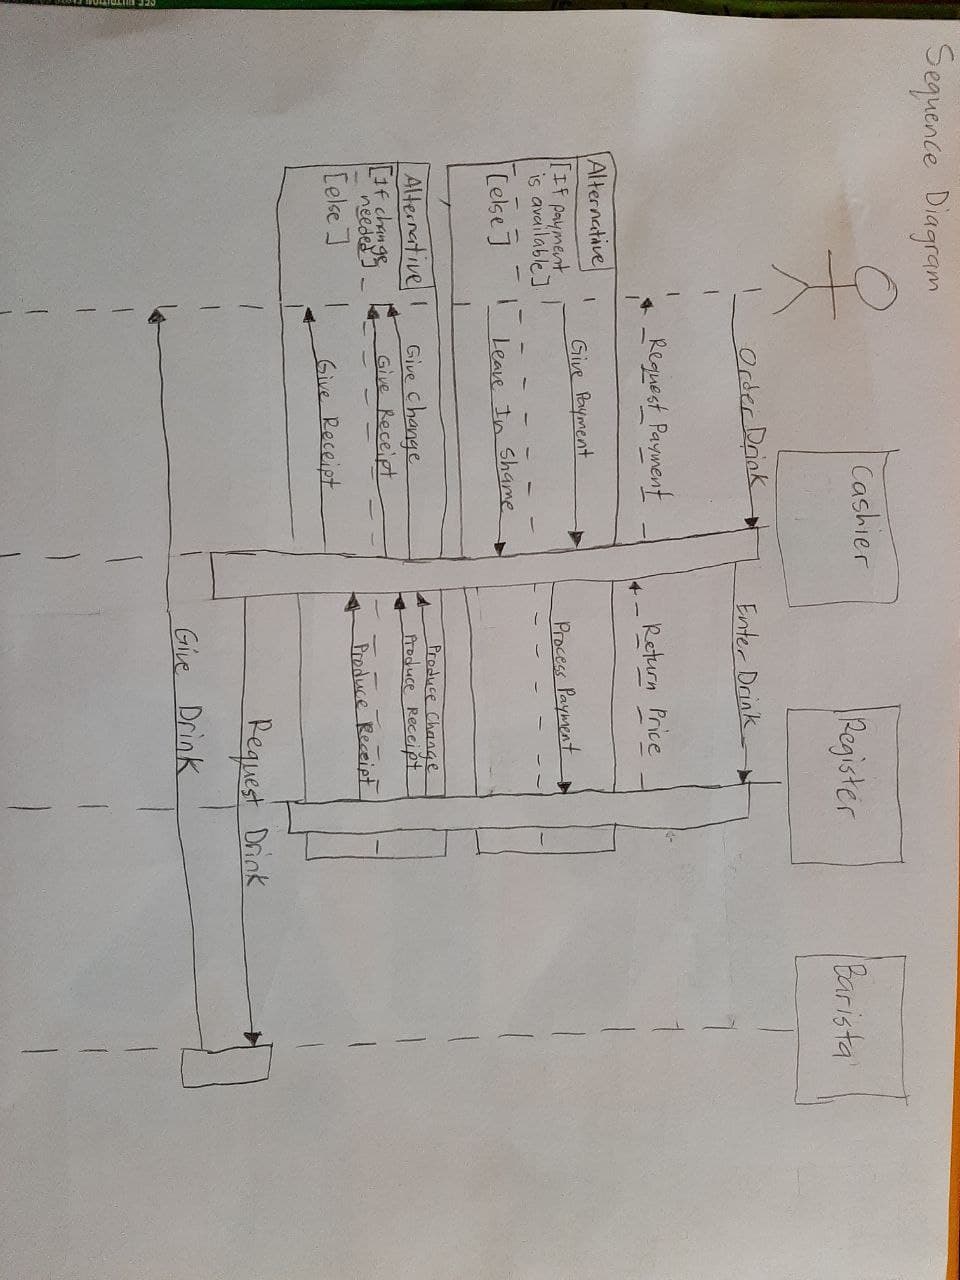 Sequence Diagram
Cashier
Register
Barista
Order Drink
Enter Drink
Request Payment
Return Price
Alternative
[If payment
is available]
Give Payment
Process Payment
[else]
Leave In Shame
Alternative
[If change
needed]
Give Change
Produce Change
Give Receipt
Produce Receipt
[else]
Give Receipt
Produce Receipt
Request Drink
Give Drink